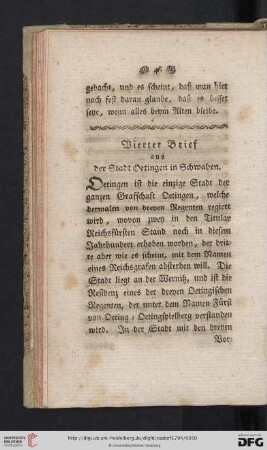 46
gedacht, und es scheint, daß man hier
noch fest daran glaube, daß es besser
seye, wenn alles beym Alten bleibe.
Vierter Brief
aus
der Stadt Oetingen in Schwaben.
Oetingen ist die einzige Stadt der
ganzen Grafschaft Oetingen, welche
dermalen von dreyen Regenten regiert
wird, wovon zwey in den Titular
Reichsfürsten Stand noch in diesem
Jahrhundert erhoben worden, der drit-
te aber wie es scheint, mit dem Namen
eines Reichsgrafen absterben will. Die
Stadt liegt an der Wernitz, und ist die
Residenz eines der dreyen Oetingischen
Regenten, der unter dem Namen Fürst
von Oeting-Oetingspielberg verstanden
wird. In der Stadt mit den dreyen
Vor-
http://digi.ub.uni-heidelberg.de/diglit/sador1794/0050
© Universitätsbibliothek Heidelberg
gefördert durch die
DFG